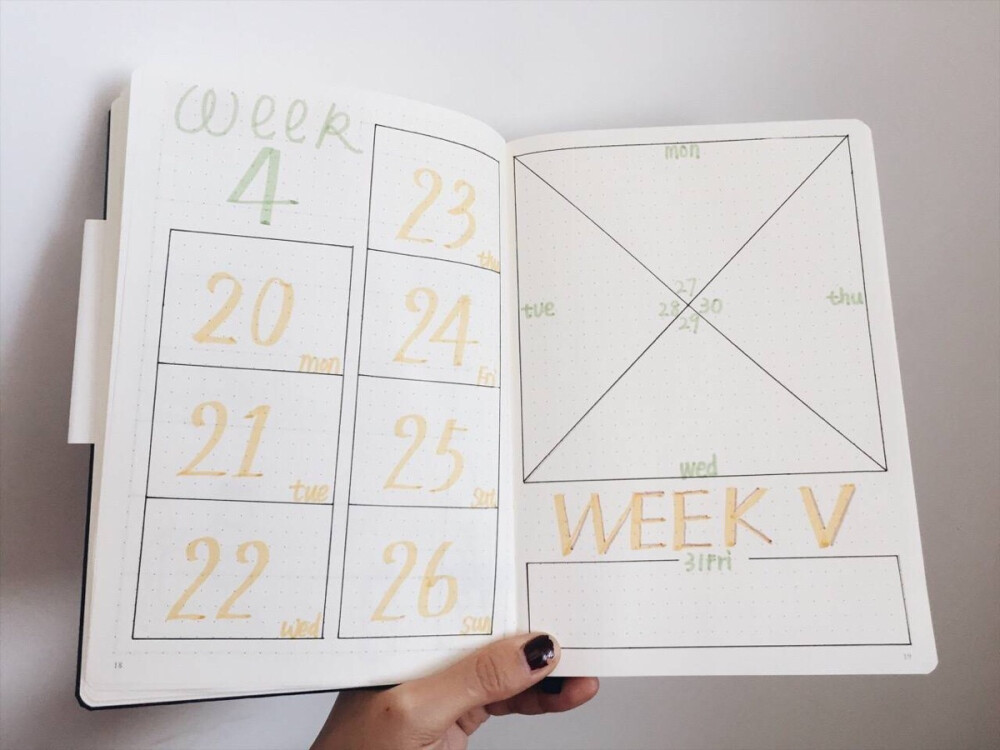 Week
4
20
mon
21
tue
22
wed
23
thu
24
Fri
25
26
sun
18
mon
tue
thu
27
28
30
29
wed
WEEK V
31 Fri
19